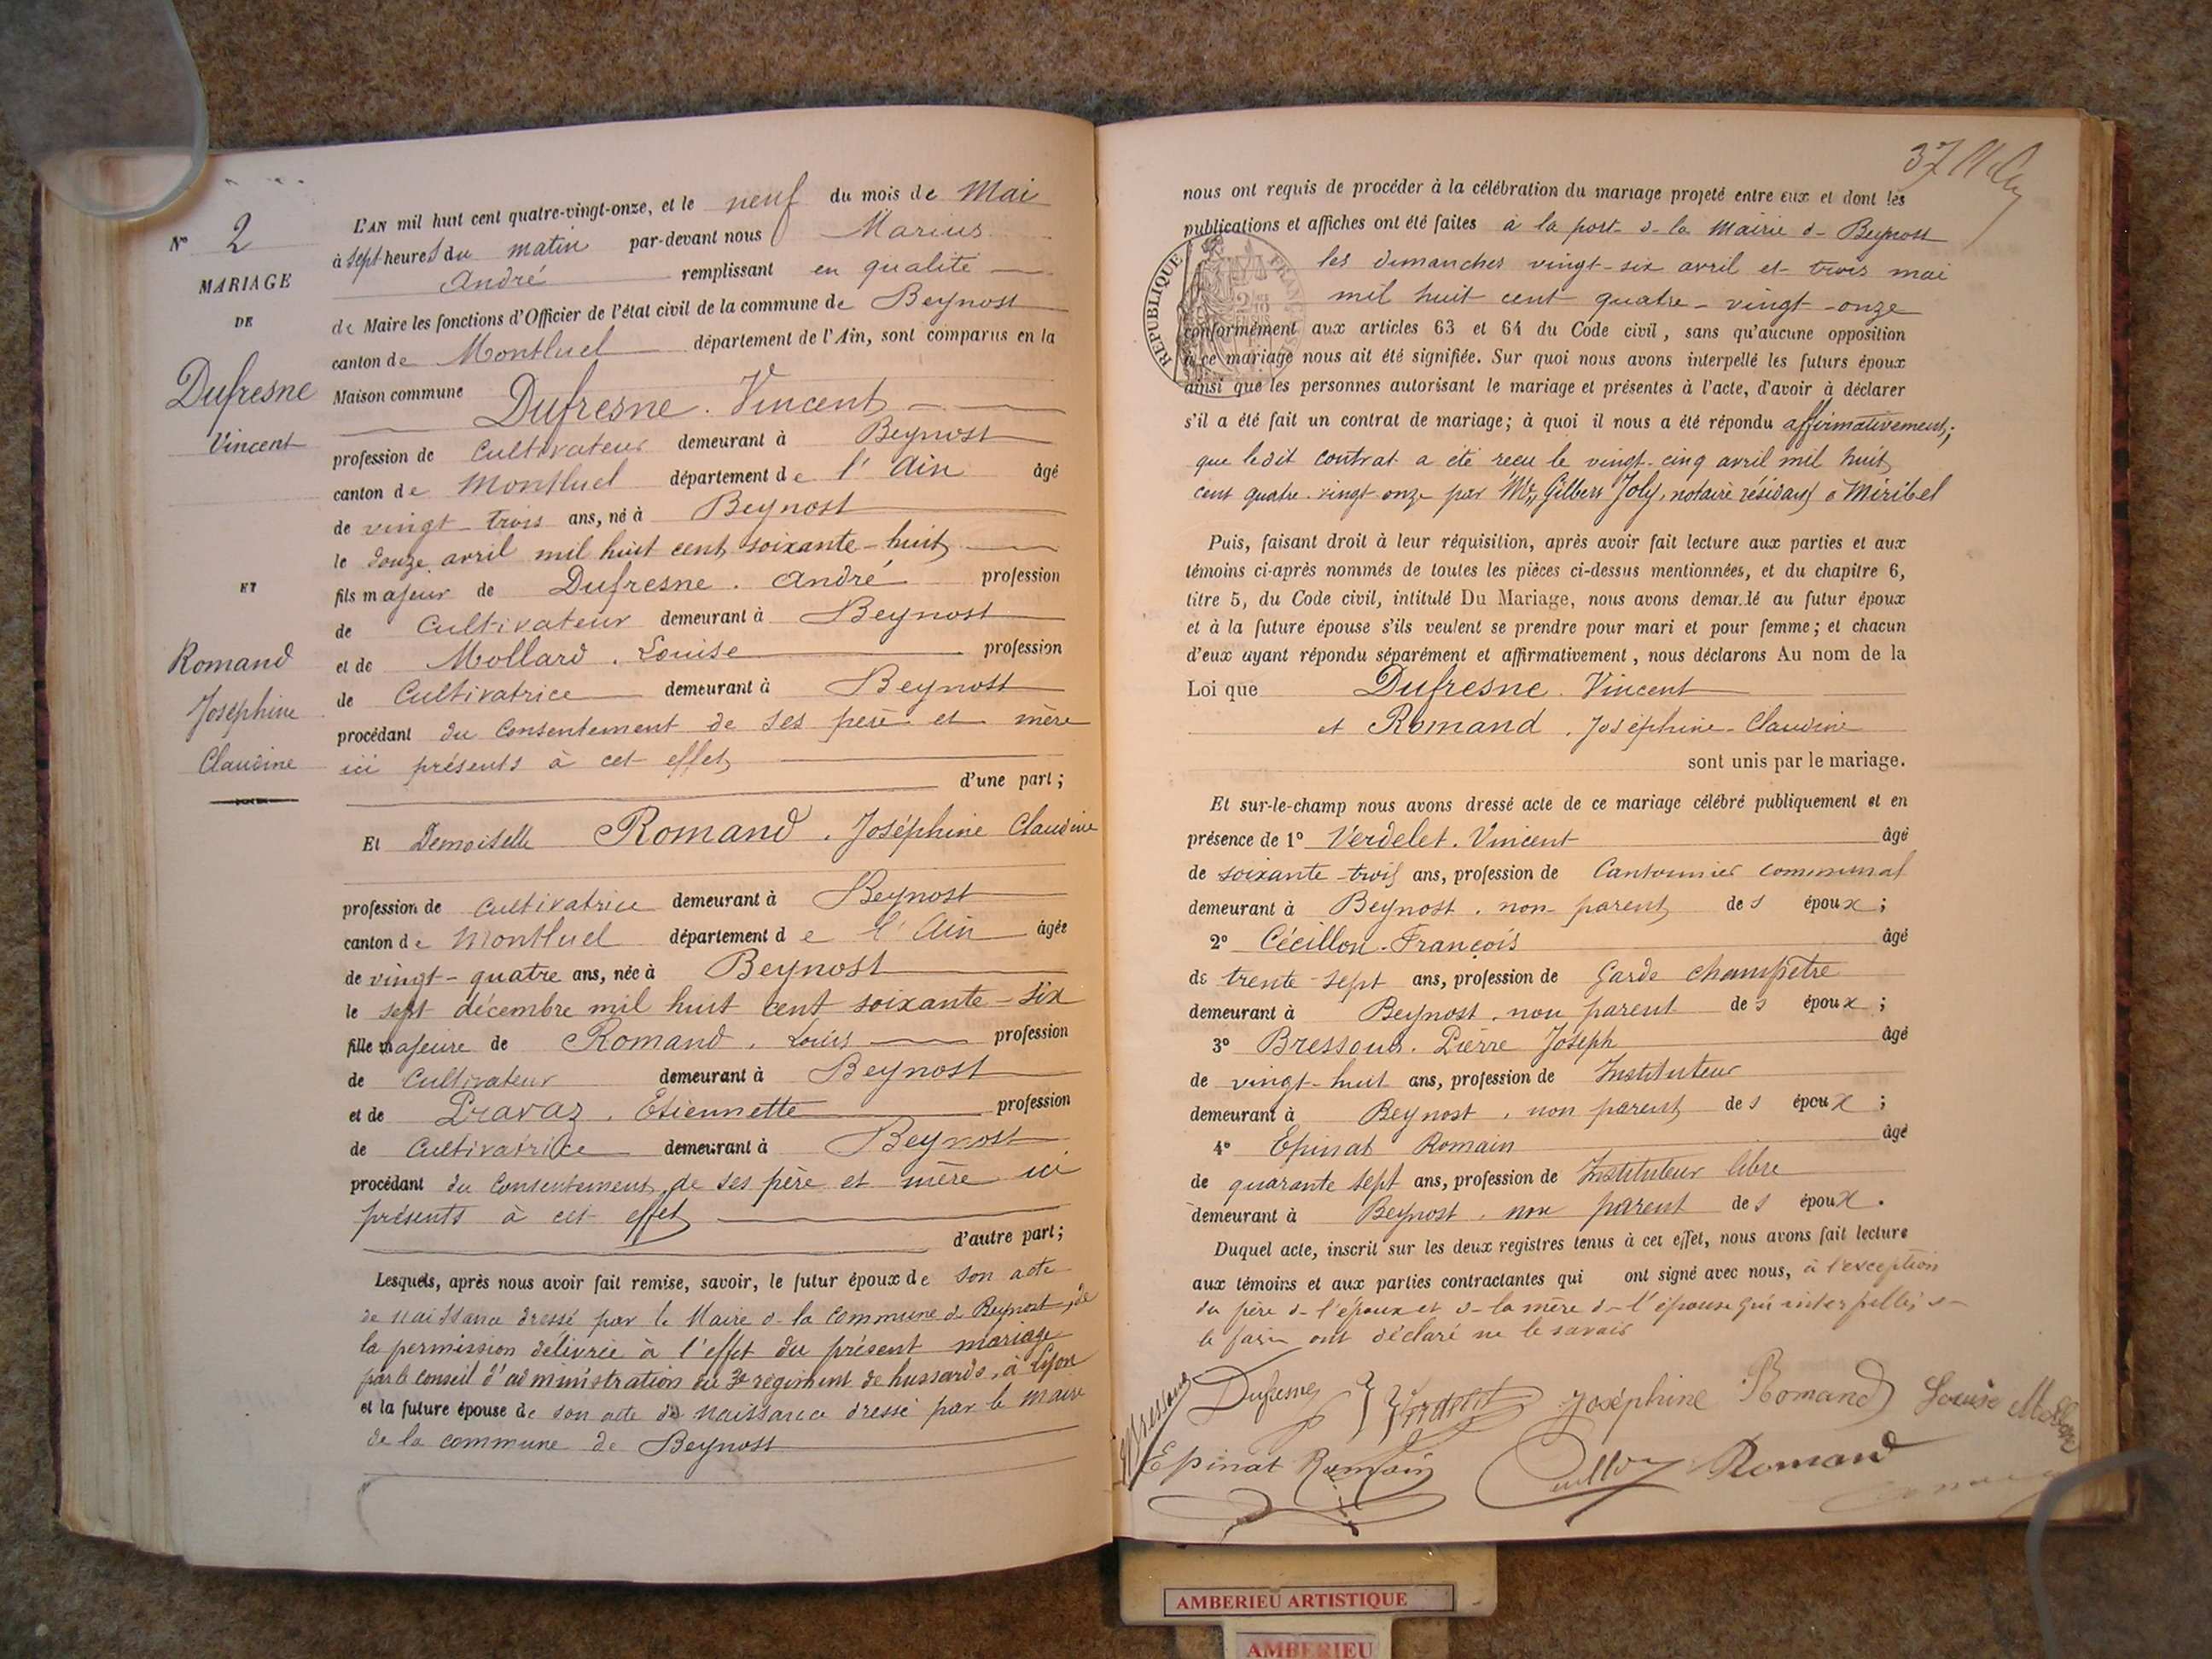 N° 2
MARIAGE
DE
Dufresne
Vincent
ET
Romand
Joséphine
Claudine
L'AN mil huit cent quatre-vingt-onze, et le neuf du mois de Mai
à sept heures du matin par-devant nous Marius
André remplissant en qualité
de Maire les fonctions d'Officier de l'état civil de la commune de Beynost
canton de Montluel département de l'Ain, sont comparus en la
Maison commune Dufresne. Vincent
profession de Cultivateur demeurant à Beynost
canton de Montluel département de l'Ain âgé
de vingt-trois ans, né à Beynost
le douze avril mil huit cent soixante-huit
fils majeur de Dufresne. André profession
de Cultivateur demeurant à Beynost
et de Mollard. Louise profession
de Cultivatrice demeurant à Beynost
procédant du consentement de ses père et mère
ici présents à cet effet
d'une part;
Et Demoiselle Romand. Joséphine Claudine
profession de cultivatrice demeurant à Beynost
canton de Montluel département de l'Ain âgée
de vingt-quatre ans, née à Beynost
le sept décembre mil huit cent soixante-six
fille majeure de Romand. Louis profession
de Cultivateur demeurant à Beynost
et de Pravaz. Etiennette profession
de Cultivatrice demeurant à Beynost
procédant du consentement de ses père et mère ici
présents à cet effet
d'autre part;
Lesquels, après nous avoir fait remise, savoir, le futur époux de son acte
de naissance dressé par le Maire de la commune de Beynost, de
la permission délivrée à l'effet du présent mariage
par le conseil d'administration du 3e régiment de hussards, à Lyon
et la future épouse de son acte de naissance dressé par le maire
de la commune de Beynost
37
nous ont requis de procéder à la célébration du mariage projeté entre eux et dont les
publications et affiches ont été faites à la porte de la Mairie de Beynost
les dimanches vingt-six avril et trois mai
mil huit cent quatre-vingt-onze
RÉPUBLIQUE FRANÇAISE
conformément aux articles 63 et 64 du Code civil, sans qu'aucune opposition
à ce mariage nous ait été signifiée. Sur quoi nous avons interpellé les futurs époux
ainsi que les personnes autorisant le mariage et présentes à l'acte, d'avoir à déclarer
s'il a été fait un contrat de mariage; à quoi il nous a été répondu affirmativement;
que ledit contrat a été reçu le vingt-cinq avril mil huit
cent quatre-vingt onze par Me Gilbert Joly, notaire résidant à Miribel
Puis, faisant droit à leur réquisition, après avoir fait lecture aux parties et aux
témoins ci-après nommés de toutes les pièces ci-dessus mentionnées, et du chapitre 6,
titre 5, du Code civil, intitulé Du Mariage, nous avons demandé au futur époux
et à la future épouse s'ils veulent se prendre pour mari et pour femme; et chacun
d'eux ayant répondu séparément et affirmativement, nous déclarons Au nom de la
Loi que Dufresne. Vincent
et Romand. Joséphine-Claudine
sont unis par le mariage.
Et sur-le-champ nous avons dressé acte de ce mariage célébré publiquement et en
présence de 1° Verdelet. Vincent âgé
de soixante-trois ans, profession de Cantonnier communal
demeurant à Beynost. non parent des époux;
2° Cécillon. François âgé
de trente-sept ans, profession de Garde champêtre
demeurant à Beynost. non parent des époux;
3° Bressoud. Pierre Joseph âgé
de vingt-huit ans, profession de Instituteur
demeurant à Beynost. non parent des époux;
4° Epinat Romain âgé
de quarante sept ans, profession de Instituteur libre
demeurant à Beynost. non parent des époux.
Duquel acte, inscrit sur les deux registres tenus à cet effet, nous avons fait lecture
aux témoins et aux parties contractantes qui ont signé avec nous, à l'exception
du père de l'époux et de la mère de l'épouse qui interpellés de
le faire ont déclaré ne le savoir
Dufresne Verdelet Joséphine Romand Louise Mollard
Bressoud
Epinat Romain Cécillon Romand
AMBERIEU ARTISTIQUE
AMBERIEU